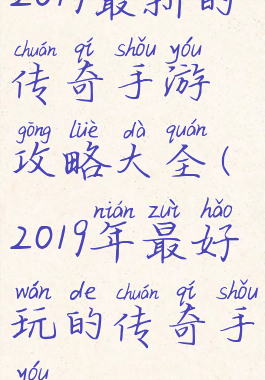 2019最新的
chuán qí shǒu yóu
传奇手游
gōng lüè dà quán
攻略大全(
nián zuì hǎo
2019年最好
wán de chuán qí shǒu
玩的传奇手
yóu